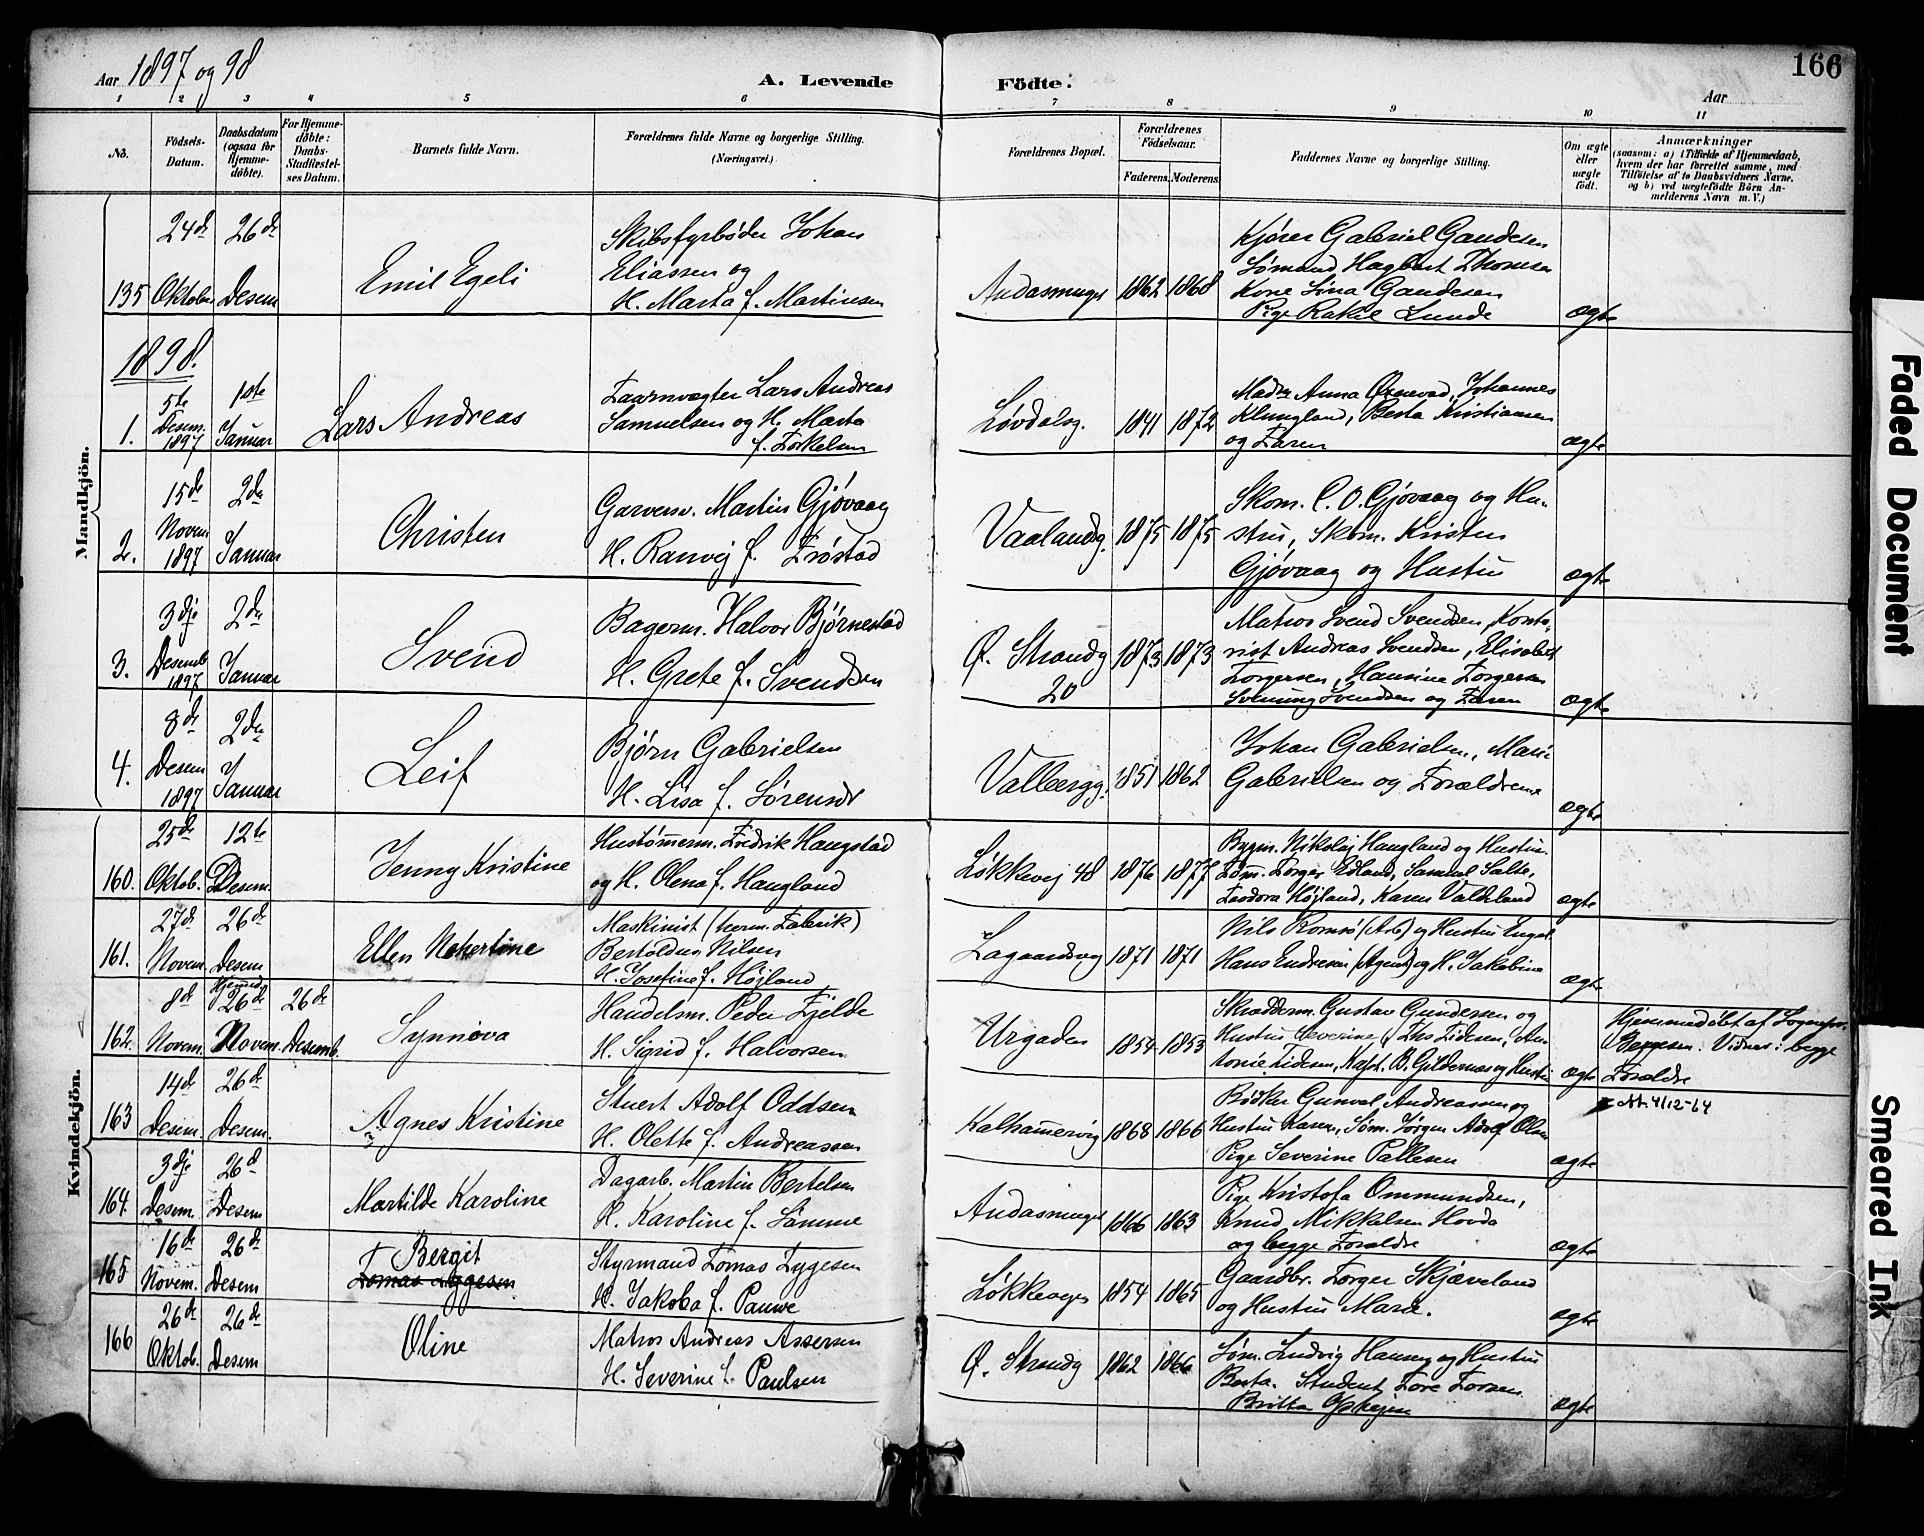 166
Aar 1897 og 98
A. Levende Födte.
Aar
1 2 3 4 5 6 7 8 9 10 11
No.
Födsels-
Datum.
Daabsdatum
(ogsaa for
Hjemme-
døbte).
For Hjemme-
døbte:
Daabs-
Stadfæstel-
ses Datum.
Barnets fulde Navn.
Forældrenes fulde Navne og borgerlige Stilling.
(Næringsvei.)
Forældrenes Bopæl.
Forældrenes
Födselsaar.
Faderens. Moderens.
Faddernes Navne og borgerlige Stilling.
Om ægte
eller
uægte
født.
Anmærkninger
(saasom: a) i Tilfælde af Hjemmedaab,
hvem der har forrettet samme, med
Tilföielse af to Daabsvidners Navne.
og b) ved uægtefödte Börn An-
melderens Navn m.V.)
Mandkjön.
135
24de
Oktober
26de
Desem
Emil Egeli
Skibsfyrbøder Johan
Eliassen og
H. Marta f. Martinsen
Andasmuget
1862 1868
Kjører Gabriel Gaudesen
Sømand Hagbart Thomsen
Kone Lina Gaudesen
Pige Rakel Lunde
ægte
1898.
1.
5te
Desem.
1897
1ste
Januar
Lars Andreas
Taarnvægter Lars Andreas
Samuelsen og H. Marta
f. Torkelsen
Løvdalsg.
1841 1872
Anna Johannes
Klungland, Berta Kristiansen
og Faren
ægte
2.
15de
Novem
1897
2den
Januar
Christen
Garversv. Martin Gjøvaag
H. Ranvej f. Trøstad
Vaalandg.
1875 1875
Skom. C. O. Gjøvaag og Hu-
stru, Skom. Kristen
Gjøvaag og Hustru
ægte
3.
3dje
Desemb
1897
2den
Januar
Svend
Bagerm. Halvor Bjørnestad
H. Grete f. Svendsen
Ø. Strandg
20
1873 1873
Matros Svend Svendsen, Konto-
rist Andreas Svendsen, Elisabet
Torgersen, Hansine Torgersen
Svenning Svendsen og Faren
ægte
4.
8de
Desem
1897
2den
Januar
Leif
Bjørn Gabrielsen
H. Lisa f. Sørensdr
Valbergg.
1851 1862
Johan Gabrielsen, Mari
Gabrielsen og Forældrene
ægte
Kvindekjön.
160.
25de
Oktob.
12te
Desem.
Jenny Kristine
Hustømmerm. Fredrik Haugstad
og H. Olena f. Haugland
Løkkevej 48
1876 1877
Bygm. Nikolaj Haugland og Hustru.
Tøm. Torger Edland, Samuel Salte,
Teodora Højland, Karen Valdeland
ægte
161.
27de
Novem.
26de
Desem
Ellen Nekertine
Maskinist (herm. Fabrik)
Bertoldus Nilsen
H. Josefine f. Højland
Lagaardsvej
1871 1871
Nils Romsø (Arb) og Hustru Engel
Hans Endresen (Agent) og H. Jakobine
ægte
162.
8de
Novem.
Hjemmed
26de
Novem.
26de
Desemb.
Synnøva
Handelsm. Peder Fjelde
H. Sigrid f. Halvorsen
Urgaden
1854 1853
Skrædderm. Gustav Gundersen og
Hustru Severine, Ths Tidesen, An-
tonie Tidesen, Kapt. B. Gildernæs og Hustru
ægte
Hjemmedøbt af Sognepr.
Børgesen. Vidner: begge
Forældre
163
14de
Desem.
26de
Desem.
Agnes Kristine
Stuert Adolf Oddsen
H. Olette f. Andreassen
Kalhammervig
1868 1866
Bødker Gunval Andreassen og
Hustru Karen, Søm. Jørgen Adolf Olsen
Pige Severine Pallesen
ægte
4/12-64
164.
3dje
Desem.
26de
Desem
Martilde Karoline
Dagarb. Martin Bertelsen
H. Karoline f. Sømme
Andasmuget
1866 1863
Pige Kristofa Ommundsen,
Knud Mikkelsen Hovda
og begge Forældre
ægte
165
16de
Novem.
26de
Desem
Bergit
Tomas Tygesen
Styrmand Tomas Tygesen
H. Jakoba f. Pauwe
Løkkevejen
1854 1865
Gaardbr. Torger Skjæveland
og Hustru Marie.
ægte
166
26de
Oktob.
26de
Desem
Oline
Matros Andreas Assersen
H. Severine f. Paulsen
Ø. Strandg
1862 1866
Søm. Ludvig Hansen og Hustru
Berta. Student Tore Torsen
Britta
ægte
Faded Document
Smeared Ink